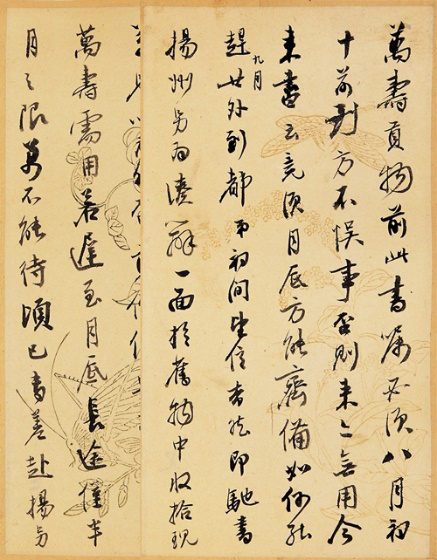 萬壽貢物前此書囑必須八月初
十前到方不悞事否則来亦無用今
来書云竟須月底方能齊備如何能
趕
九月
廿外到都初間即馳書
揚州另為湊辦一面於舊物中收拾現
萬壽需用若遲至月底長途僅半
月之限萬不能待頃已專差赴揚另